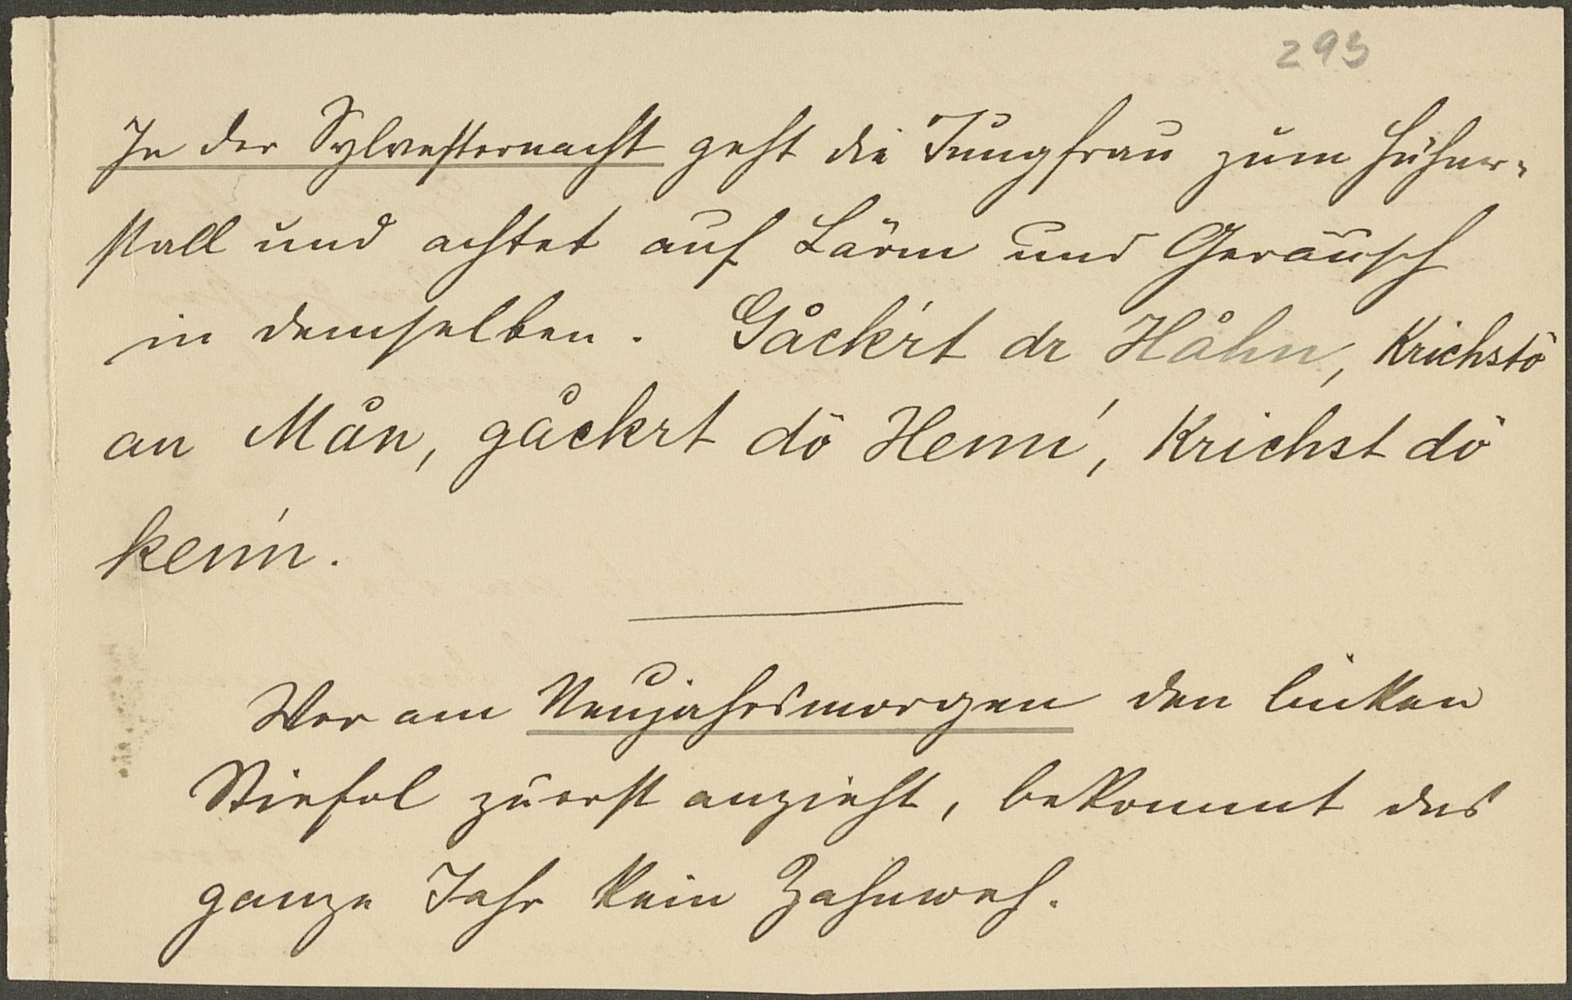 293
In der Sylvesternacht geht die Jungfrau zum Hühner-
stall und achtet auf Lärm und Geräusch
in demselben. Gåck'rt dr Håhn, Krichstö
an Mån, gåckrt dö Henn', Krichst dö
kenn'n.
Wer am Neujahrsmorgen den linken
Stiefel zuerst anzieht, bekommt das
ganze Jahr kein Zahnweh.